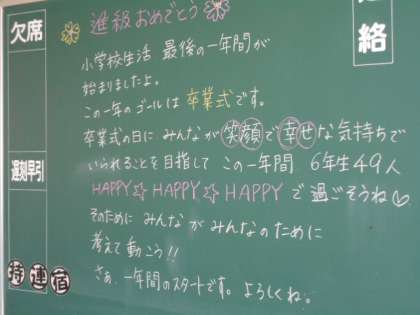 欠席
連絡
遅刻早引
持 連 宿
進級おめでとう
小学校生活 最後の一年間が
始まりましたよ。
この一年のゴールは卒業式です。
卒業式の日に みんなが笑顔で幸せな気持ちで
いられることを目指して この一年間 6年生49人
HAPPY☆HAPPY☆HAPPYで過ごそうね♡
そのために みんながみんなのために
考えて動こう!!
さぁ、一年間のスタートです。よろしくね。